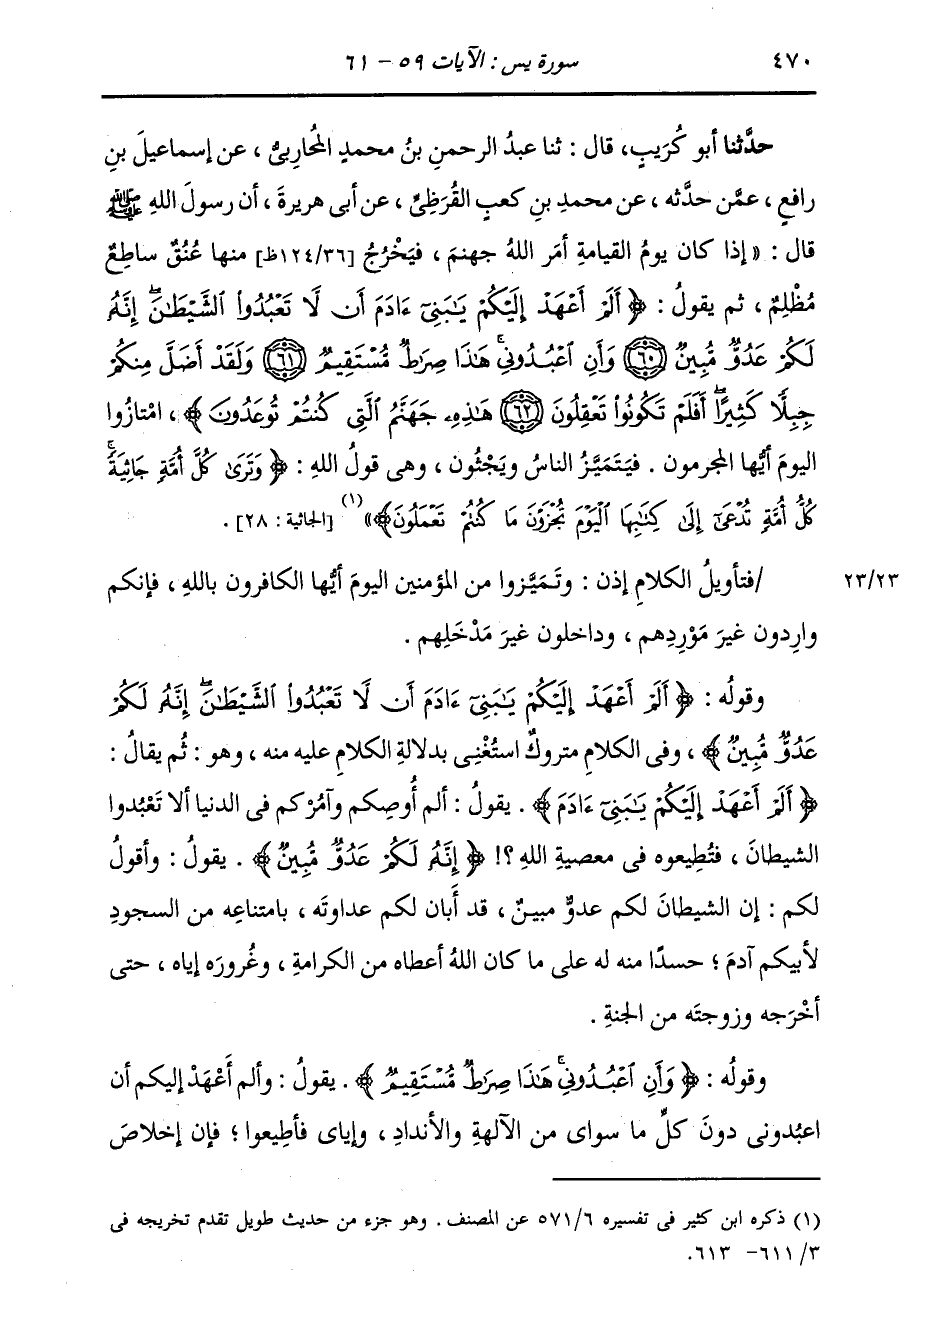 ٤٧٠ سورة يس : الآيات ٥٩ - ٦١
حدَّثنا أبو كُرَيبٍ، قال : ثنا عبدُ الرحمنِ بنُ محمدٍ المُحاربىُّ ، عن إسماعيلَ بنِ
رافعٍ ، عمَّن حدَّثه ، عن محمدِ بنِ كعبٍ القُرَظِىِّ ، عن أبى هريرةَ ، أن رسولَ اللهِ ﷺ
قال : « إذا كان يومُ القيامةِ أمَر اللهُ جهنمَ ، فيَخْرُجُ [١٢٤/٣٦ظ] منها عُنُقٌ ساطِعٌ
مُظْلِمٌ ، ثم يقولُ : ﴿ أَلَمْ أَعْهَدْ إِلَيْكُمْ يَٰبَنِىٓ ءَادَمَ أَن لَّا تَعْبُدُوا۟ ٱلشَّيْطَٰنَۖ إِنَّهُۥ
لَكُمْ عَدُوٌّ مُّبِينٌ ٦٠ وَأَنِ ٱعْبُدُونِىۚ هَٰذَا صِرَٰطٌ مُّسْتَقِيمٌ ٦١ وَلَقَدْ أَضَلَّ مِنكُمْ
جِبِلًّا كَثِيرًاۖ أَفَلَمْ تَكُونُوا۟ تَعْقِلُونَ ٦٢ هَٰذِهِۦ جَهَنَّمُ ٱلَّتِى كُنتُمْ تُوعَدُونَ ﴾ ، امْتازُوا
اليومَ أيُّها المجرمون . فيَتَمَيَّزُ الناسُ ويَجْثُون ، وهى قولُ اللهِ : ﴿ وَتَرَىٰ كُلَّ أُمَّةٍ جَاثِيَةًۚ
كُلُّ أُمَّةٍ تُدْعَىٰٓ إِلَىٰ كِتَٰبِهَا ٱلْيَوْمَ تُجْزَوْنَ مَا كُنتُمْ تَعْمَلُونَ﴾» (١) [الجاثية : ٢٨] .
/فتأويلُ الكلامِ إذن : وتَمَيَّزوا من المؤمنين اليومَ أيُّها الكافرون باللهِ ، فإنكم ٢٣/٢٣
وارِدون غيرَ مَوْرِدِهم ، وداخلون غيرَ مَدْخَلِهم .
وقولُه : ﴿ أَلَمْ أَعْهَدْ إِلَيْكُمْ يَٰبَنِىٓ ءَادَمَ أَن لَّا تَعْبُدُوا۟ ٱلشَّيْطَٰنَۖ إِنَّهُۥ لَكُمْ
عَدُوٌّ مُّبِينٌ ﴾ ، وفى الكلامِ متروكٌ استُغْنِى بدلالةِ الكلامِ عليه منه ، وهو : ثُم يقالُ :
﴿ أَلَمْ أَعْهَدْ إِلَيْكُمْ يَٰبَنِىٓ ءَادَمَ ﴾ . يقولُ : ألم أُوصِكم وآمُرْكم فى الدنيا ألا تَعْبُدوا
الشيطانَ ، فتُطِيعوه فى معصيةِ اللهِ ؟! ﴿ إِنَّهُۥ لَكُمْ عَدُوٌّ مُّبِينٌ ﴾ . يقولُ : وأقولُ
لكم : إن الشيطانَ لكم عدوٌّ مبينٌ ، قد أَبان لكم عداوتَه ، بامتناعِه من السجودِ
لأبيكم آدمَ ؛ حسدًا منه له على ما كان اللهُ أعطاه من الكرامةِ ، وغُرورَه إياه ، حتى
أخْرَجه وزوجتَه من الجنةِ .
وقولُه : ﴿ وَأَنِ ٱعْبُدُونِىۚ هَٰذَا صِرَٰطٌ مُّسْتَقِيمٌ ﴾ . يقولُ : وألم أَعْهَدْ إليكم أن
اعبُدونى دونَ كلِّ ما سواى من الآلهةِ والأندادِ ، وإياى فأطِيعوا ؛ فإن إخلاصَ
(١) ذكره ابن كثير فى تفسيره ٥٧١/٦ عن المصنف . وهو جزء من حديث طويل تقدم تخريجه فى
٣/ ٦١١- ٦١٣.